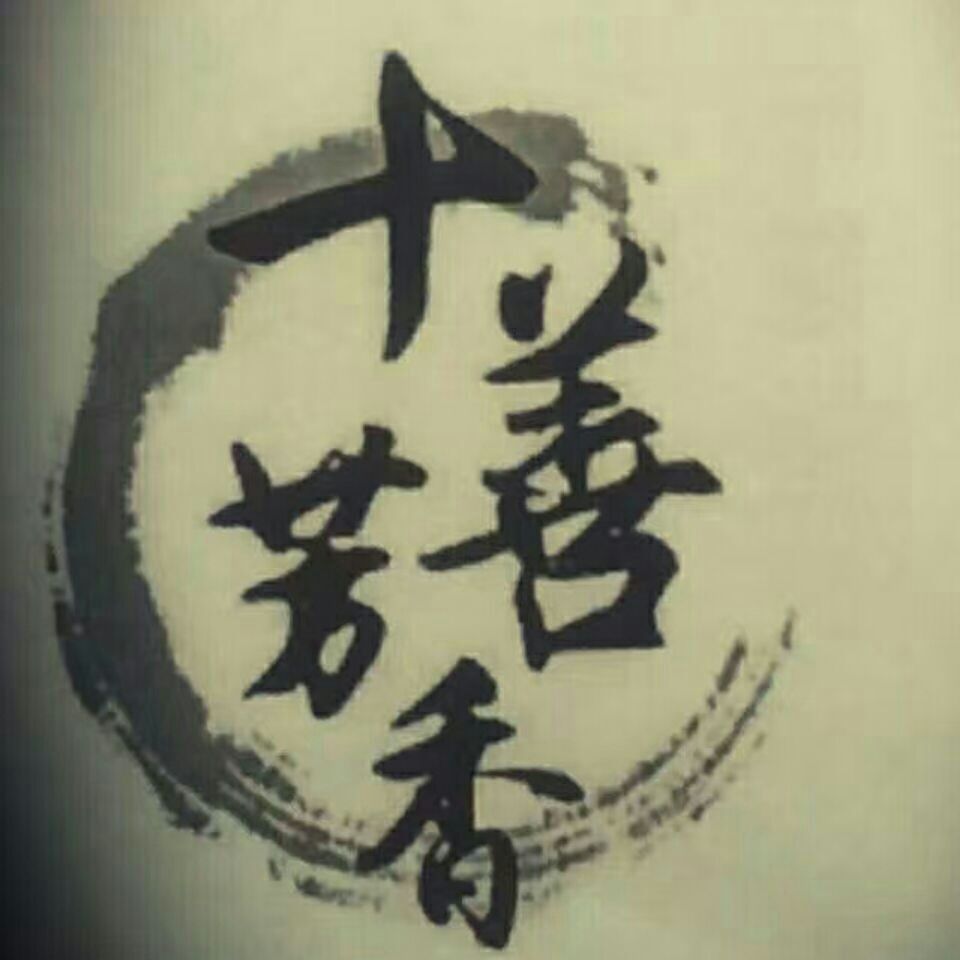 十善
芳香